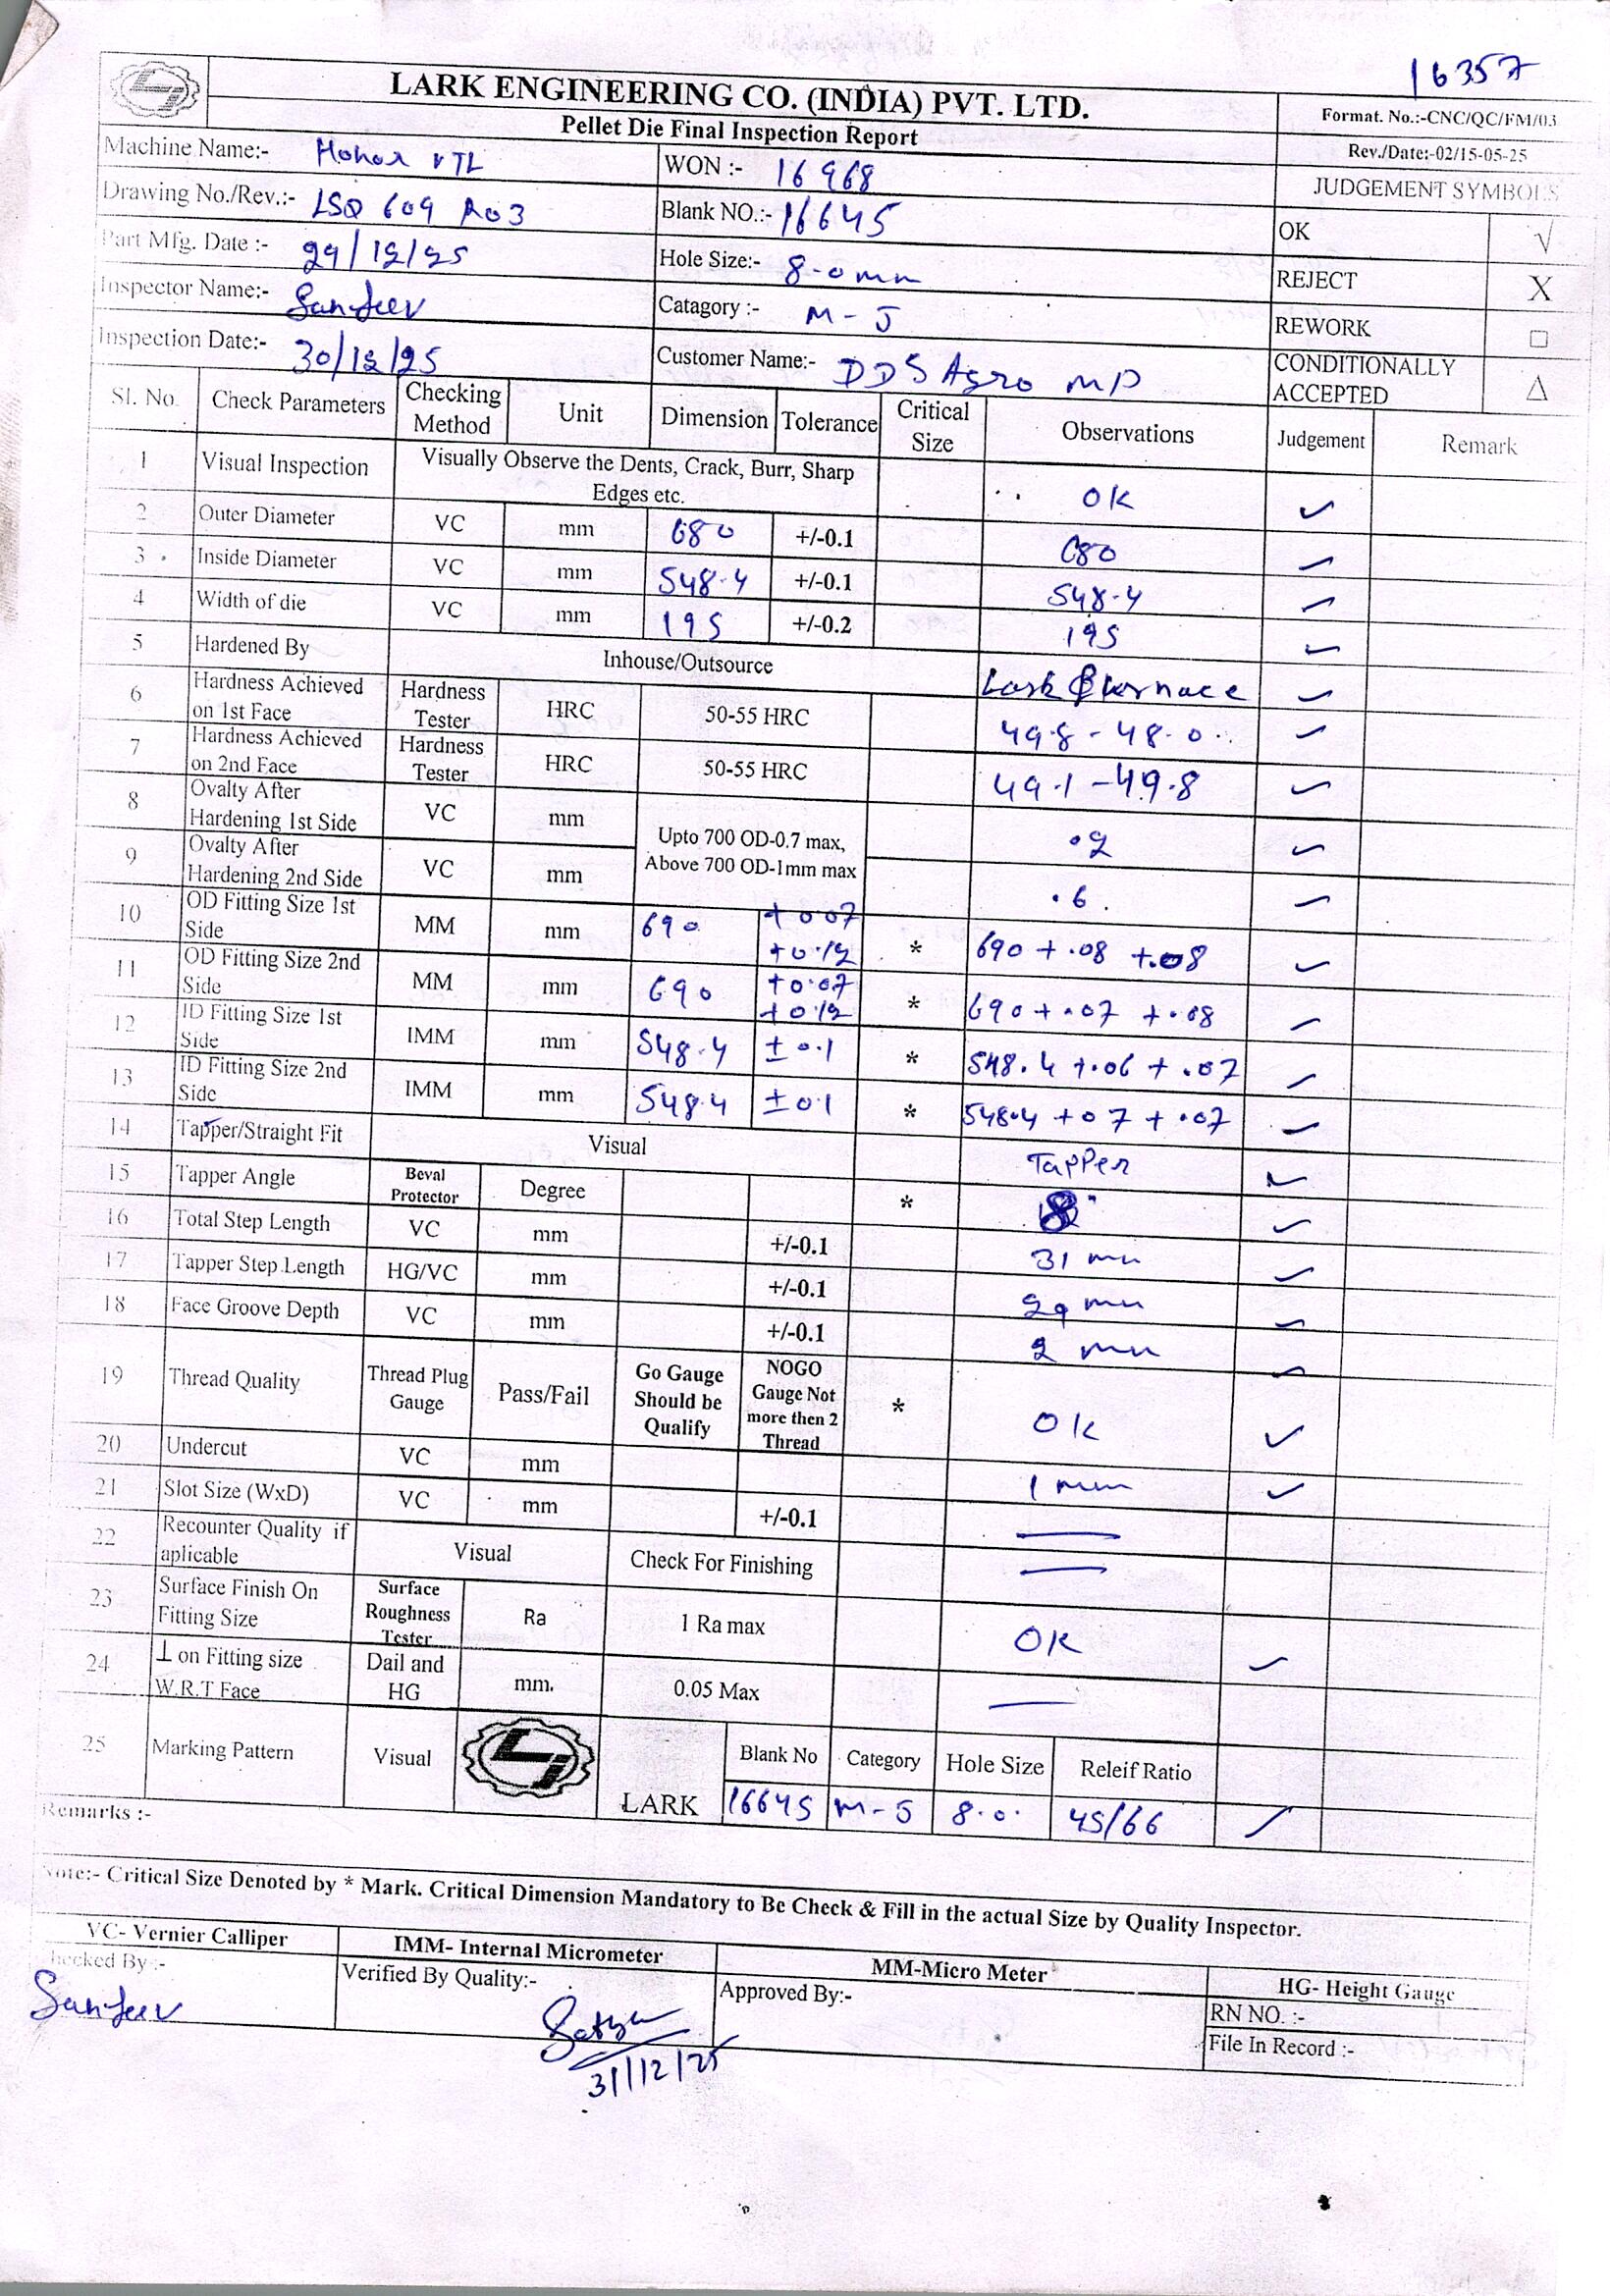 16357
LARK ENGINEERING CO. (INDIA) PVT. LTD.
Pellet Die Final Inspection Report
Format. No.:-CNC/QC/FM/03
Rev./Date:-02/15-05-25
Machine Name:- VTL WON :- 16968 JUDGEMENT SYMBOLS
Drawing No./Rev.:- LSQ 609 R03 Blank NO.:- 16645 OK √
Part Mfg. Date :- 29/12/25 Hole Size:- 8.0mm REJECT X
Inspector Name:- Sanjeev Catagory :- M-J REWORK □
Inspection Date:- 30/12/25 Customer Name:- DDS Agro MP CONDITIONALLY ACCEPTED △
Sl. No. Check Parameters Checking Method Unit Dimension Tolerance Critical Size Observations Judgement Remark
1 Visual Inspection Visually Observe the Dents, Crack, Burr, Sharp Edges etc. OK ✓
2 Outer Diameter VC mm 680 +/-0.1 680 ✓
3 Inside Diameter VC mm 548.4 +/-0.1 548.4 ✓
4 Width of die VC mm 195 +/-0.2 195 ✓
5 Hardened By Inhouse/Outsource Lark ✓
6 Hardness Achieved on 1st Face Hardness Tester HRC 50-55 HRC 49.8 - 48.0 ✓
7 Hardness Achieved on 2nd Face Hardness Tester HRC 50-55 HRC 49.1 - 49.8 ✓
8 Ovalty After Hardening 1st Side VC mm Upto 700 OD-0.7 max, Above 700 OD-1mm max ✓
9 Ovalty After Hardening 2nd Side VC mm .6 ✓
10 OD Fitting Size 1st Side MM mm 690 +0.07 +0.12 * 690 +.08 +.08 ✓
11 OD Fitting Size 2nd Side MM mm 690 +0.07 +0.12 * 690 +.07 +.08 ✓
12 ID Fitting Size 1st Side IMM mm 548.4 ±0.1 * 548.4 +.06 +.07 ✓
13 ID Fitting Size 2nd Side IMM mm 548.4 ±0.1 * 548.4 +07 +.07 ✓
14 Tapper/Straight Fit Visual Tapper ✓
15 Tapper Angle Beval Protector Degree * 8° ✓
16 Total Step Length VC mm +/-0.1 31 mm ✓
17 Tapper Step Length HG/VC mm +/-0.1 29 mm ✓
18 Face Groove Depth VC mm +/-0.1 2 mm ✓
19 Thread Quality Thread Plug Gauge Pass/Fail Go Gauge Should be Qualify NOGO Gauge Not more then 2 Thread * OK ✓
20 Undercut VC mm 1 mm ✓
21 Slot Size (WxD) VC mm +/-0.1 —
22 Recounter Quality if aplicable Visual Check For Finishing —
23 Surface Finish On Fitting Size Surface Roughness Tester Ra 1 Ra max OK ✓
24 ⊥ on Fitting size W.R.T Face Dail and HG mm. 0.05 Max —
25 Marking Pattern Visual LARK Blank No Category Hole Size Releif Ratio
16645 M-J 8.0 45/66 ✓
Remarks :-
Note:- Critical Size Denoted by * Mark. Critical Dimension Mandatory to Be Check & Fill in the actual Size by Quality Inspector.
VC- Vernier Calliper IMM- Internal Micrometer MM-Micro Meter HG- Height Gauge
Checked By :- Verified By Quality:- Approved By:- RN NO. :-
Sanjeev File In Record :-
31/12/25